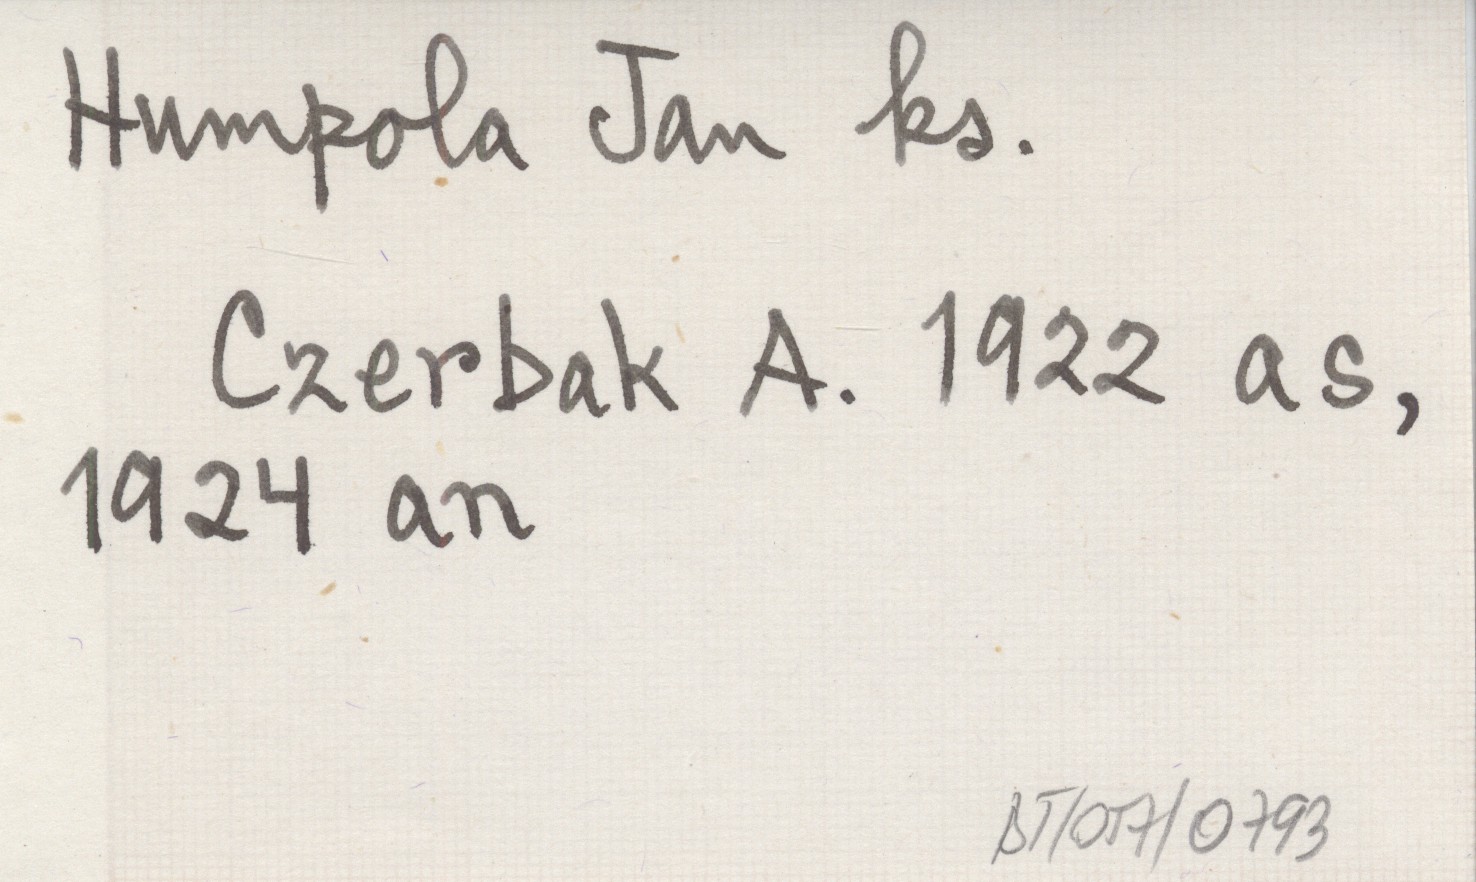 Humpola Jan ks.
Czerbak A. 1922 as,
1924 an
BT/057/0793